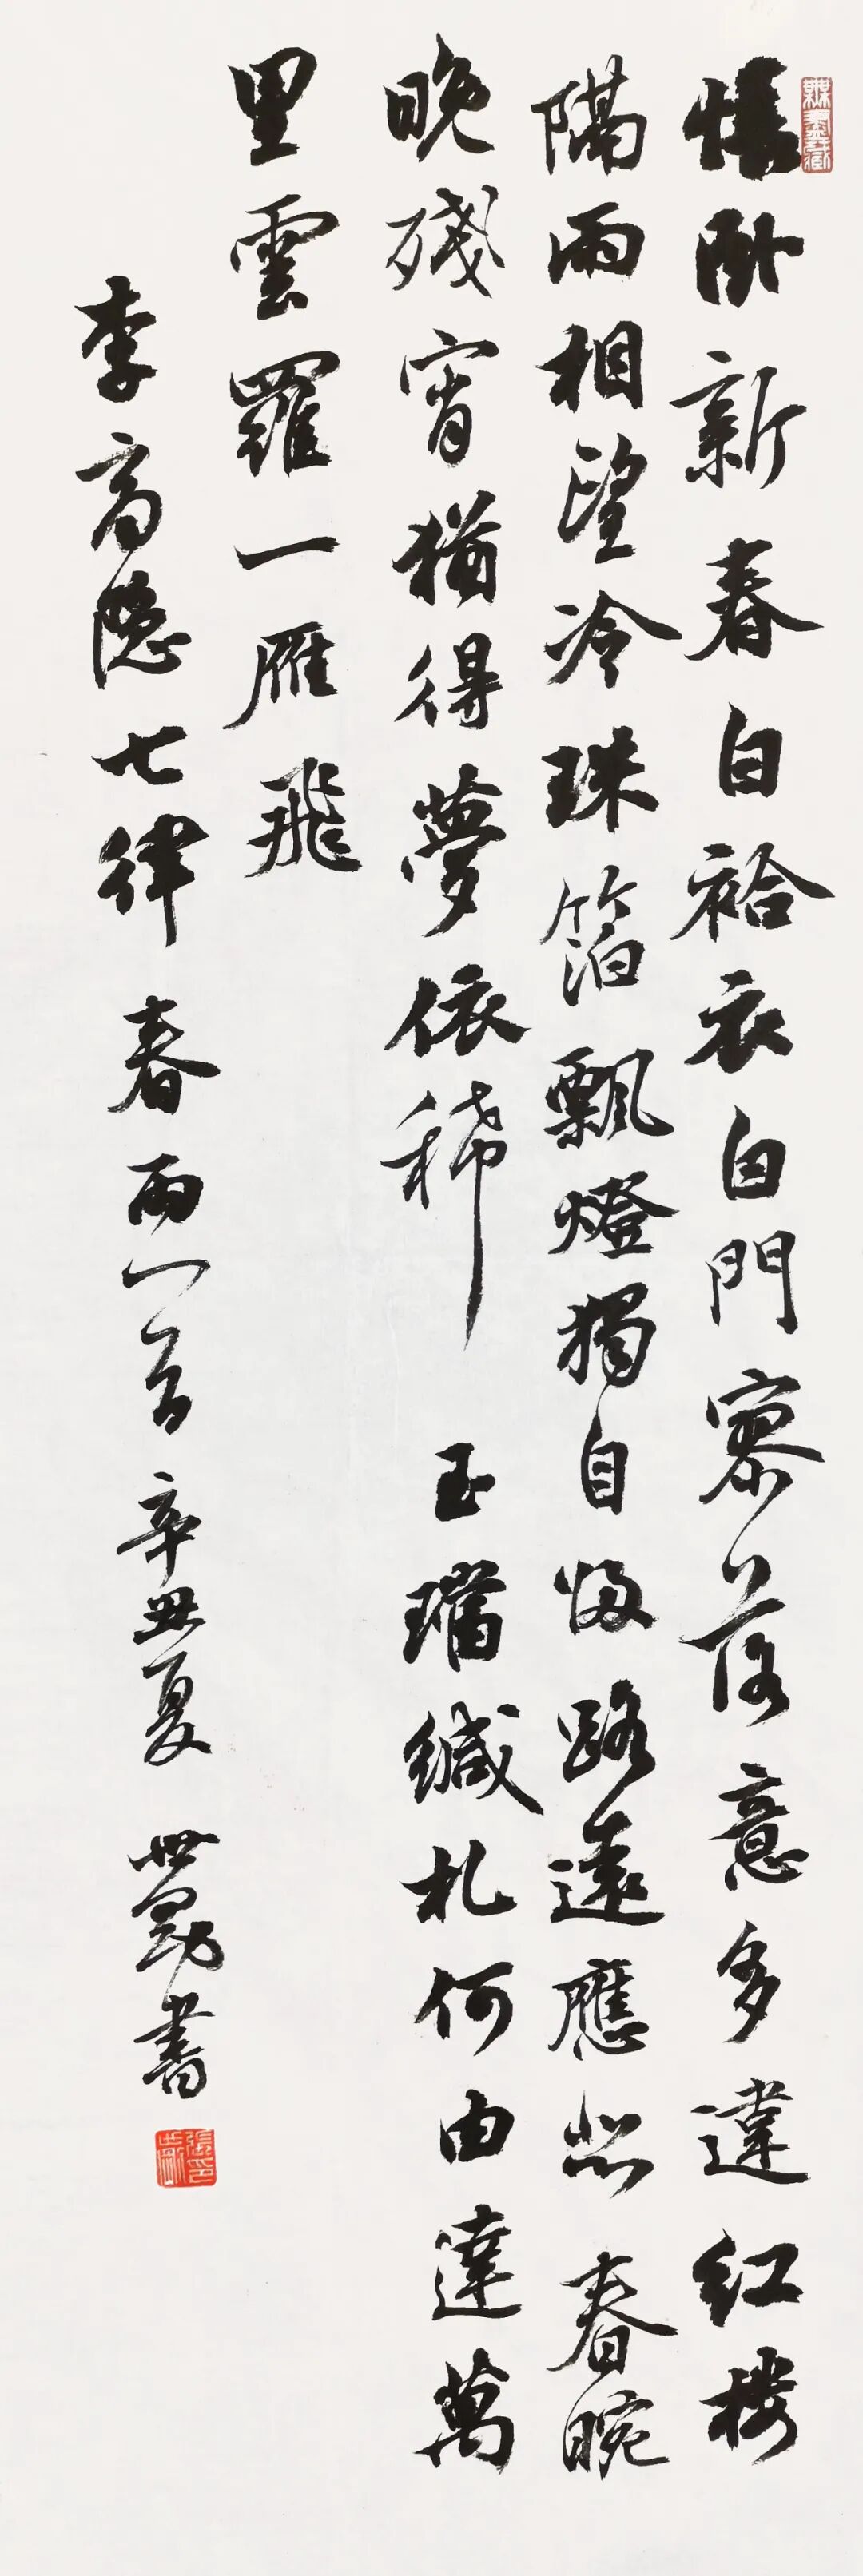 無盡藏
悵卧新春白袷衣白門寥落意多違红楼
隔雨相望冷珠箔飄燈獨自歸路遠應悲春晼
晚殘宵猶得夢依稀 玉璫緘札何由達萬
里雲羅一雁飛
李商隐七律 春雨一首 辛丑夏 世書